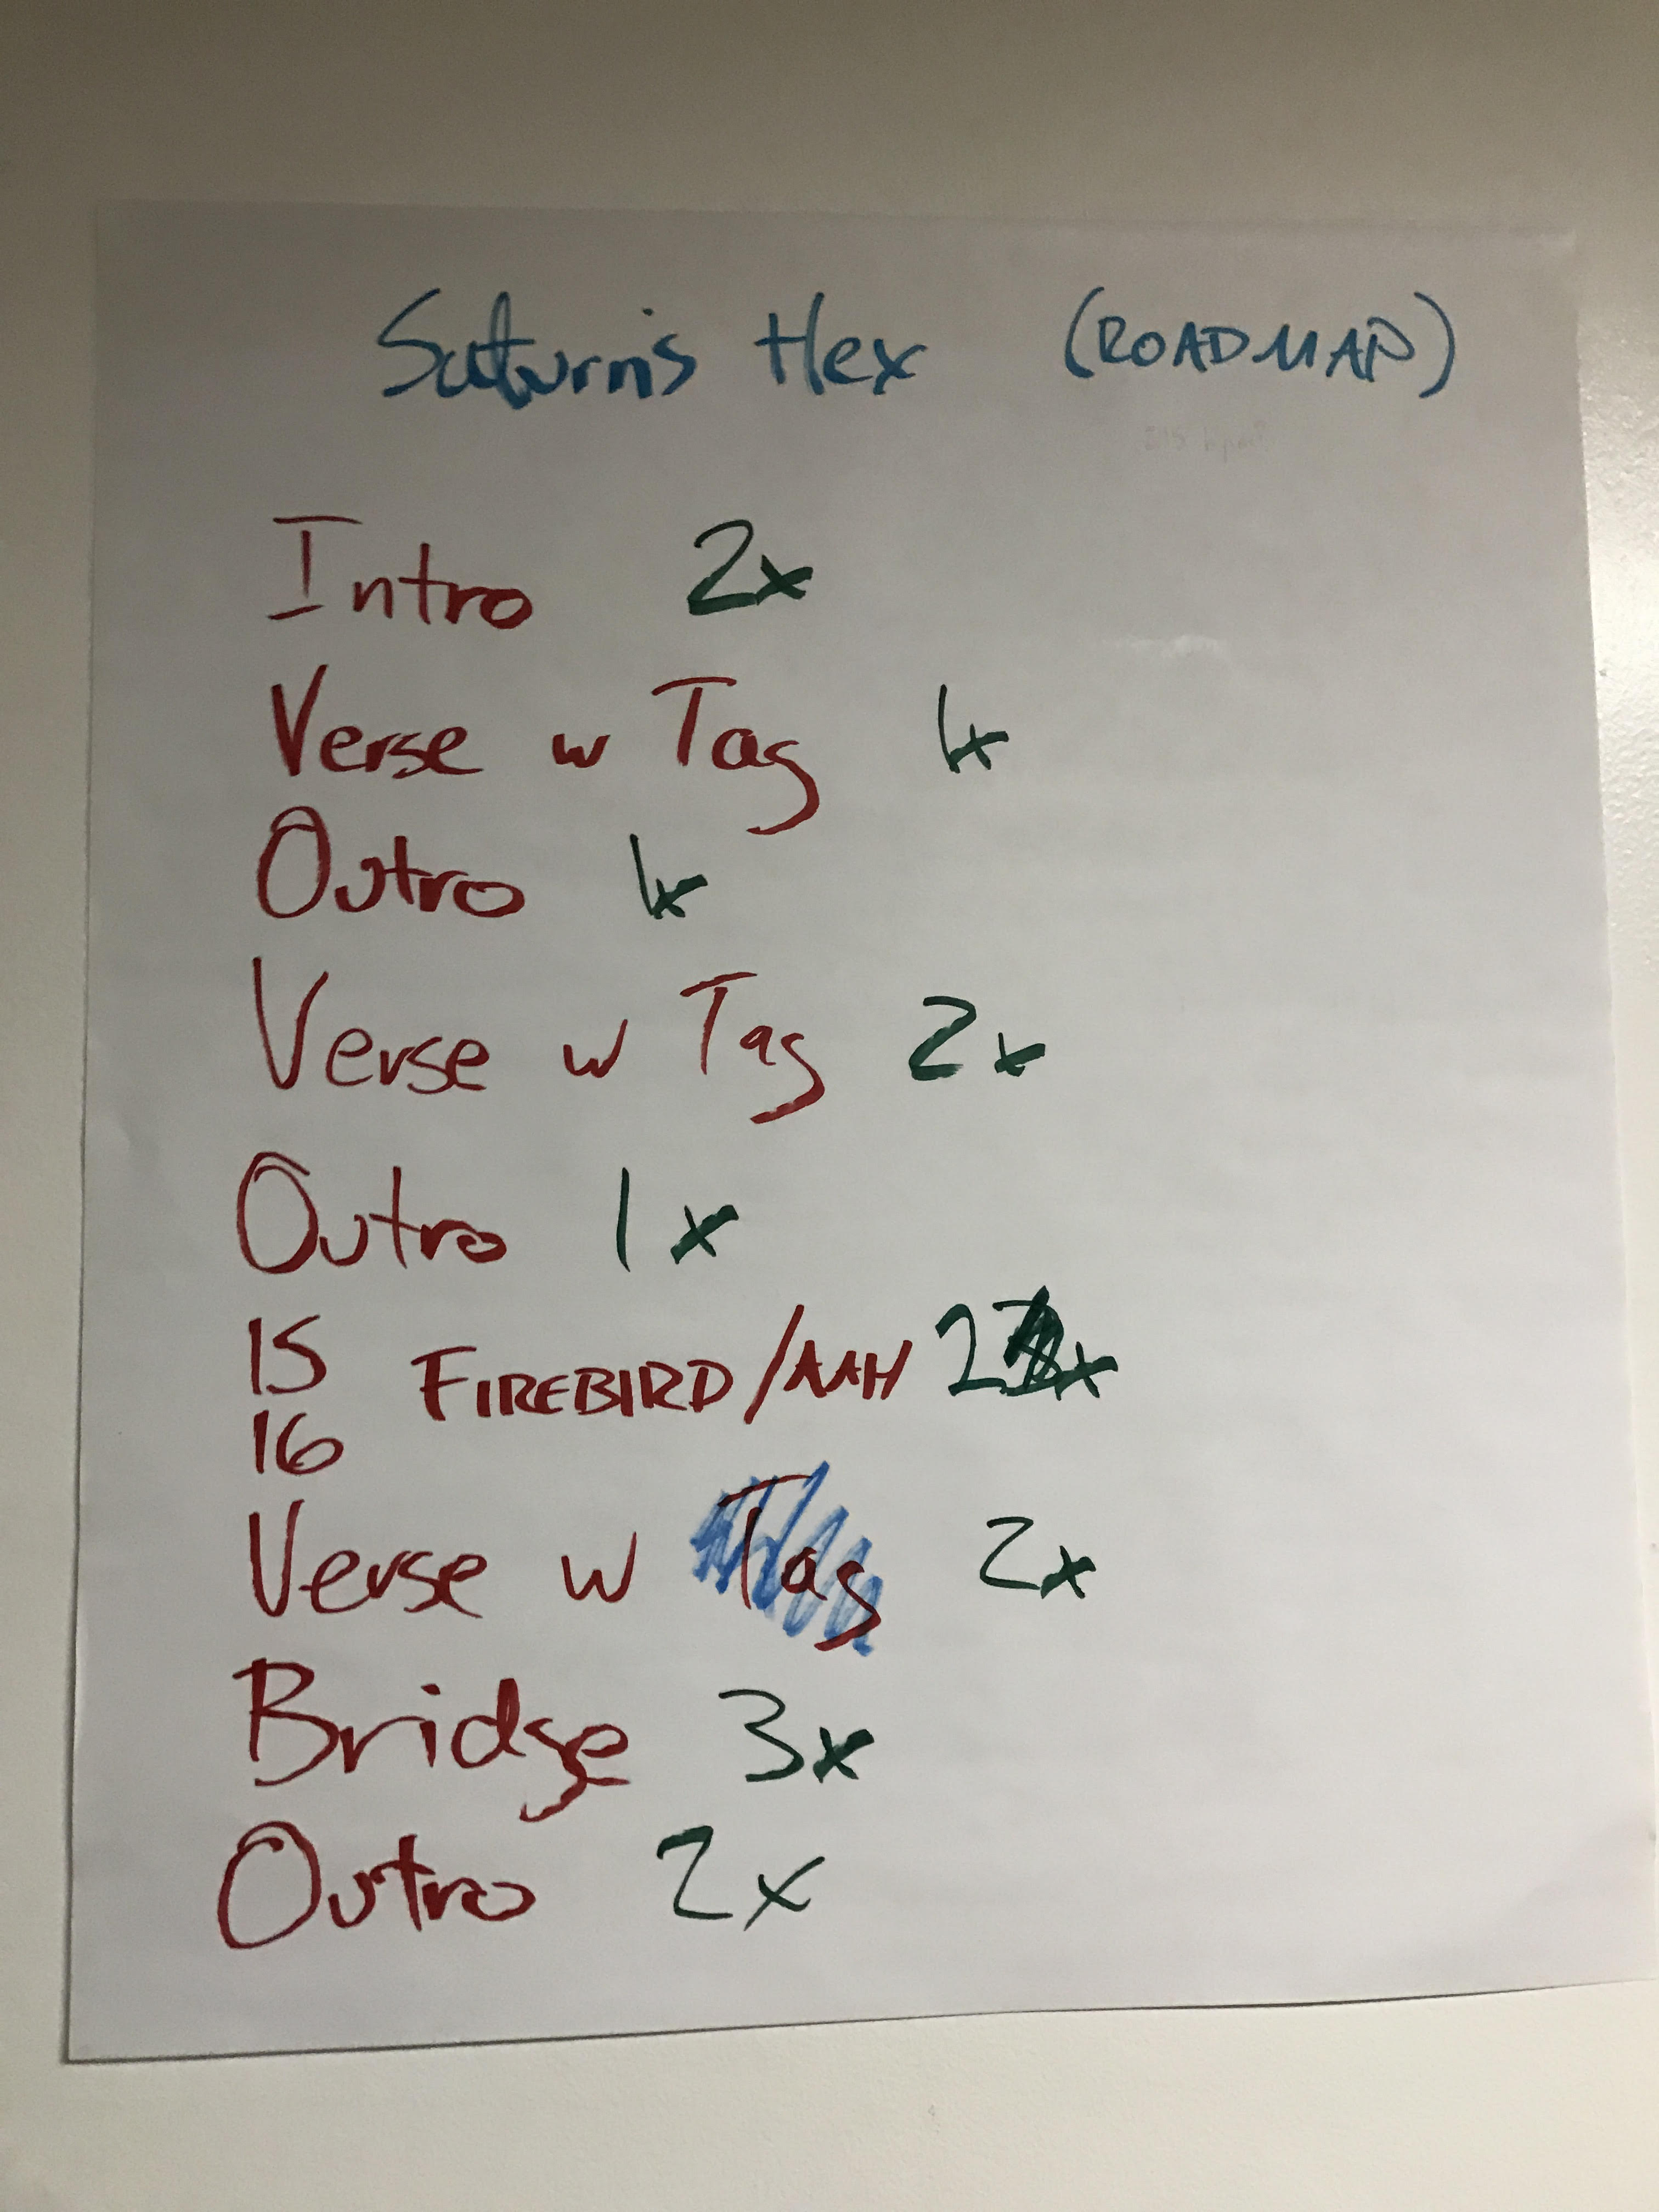 Saturn's Hex (ROADMAP)
Intro 2x
Verse w Tag 1x
Outro 1x
Verse w Tag 2x
Outro 1x
15
FIREBIRD/MH 2x
16
Verse w Tag 2x
Bridge 3x
Outro 2x